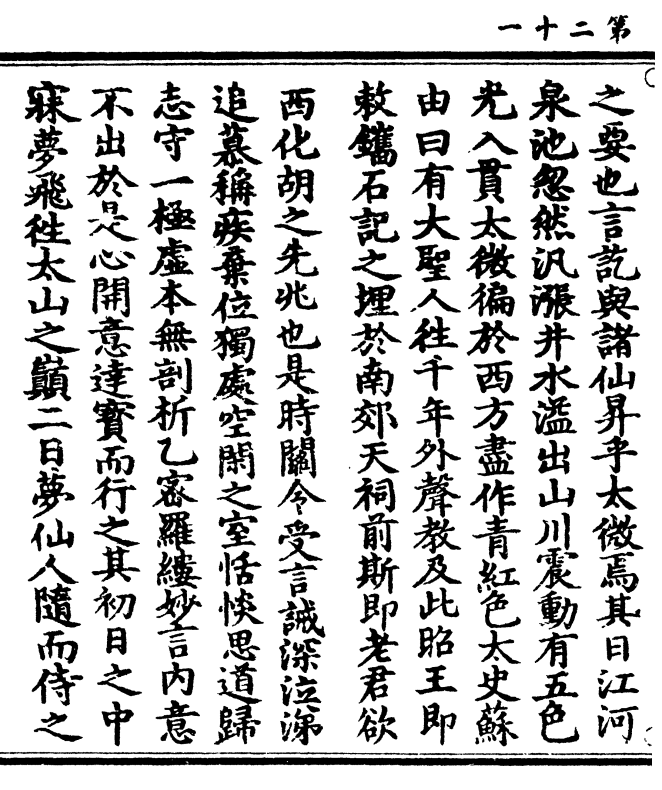 第二十一
之要也言訖與諸仙昇乎太微焉其日江河
泉池忽然汎漲井水溢出山川震動有五色
光入貫太微徧於西方盡作青紅色太史蘇
由曰有大聖人徃千年外聲教及此昭王即
敕鐫石記之埋於南郊天祠前斯即老君欲
西化胡之先兆也是時關令受言誡深泣涕
追慕稱疾棄位獨處空閑之室恬惔思道歸
志守一極虛本無剖析乙密羅縷妙言內意
不出於是心開意達寶而行之其初日之中
寐夢飛徃太山之巔二日夢仙人隨而侍之